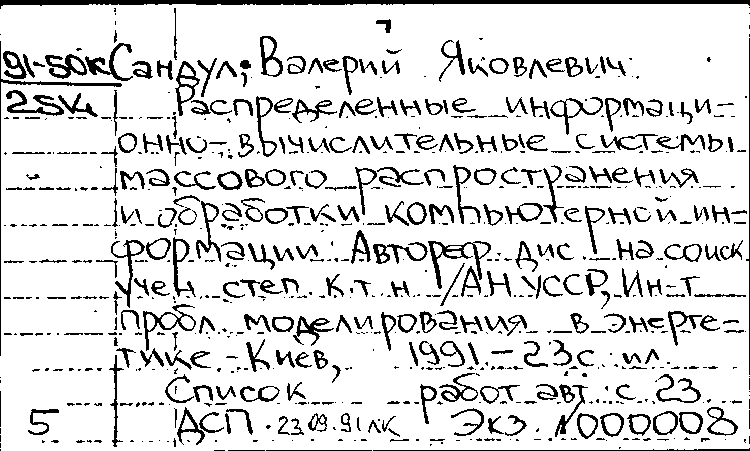 7
91-50к Сандул, Валерий Яковлевич.
Распределенные информаци-
онно-вычислительные системы
массового распространения
и обработки компьютерной ин-
формации: Автореф. дис. на соиск.
учен. степ. к.т.н. /АН УССР, Ин-т
пробл. моделирования в энерге-
тике.-Киев, 1991.-23с. ил.
Список работ авт.: с. 23.
5 ДСП. 23.09.91 лк Экз. N000008